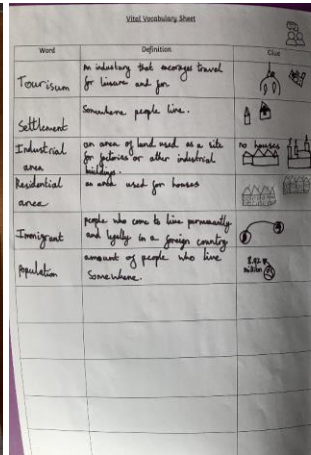 Vital Vocabulary Sheet
Word Definition Clue
Tourisum
An industary that encorages travel
for liesure and fun
Settlement
Somewhere people live.
Industrial
area
an area of land used as a site
for factories or other industrial
buildings.
no houses
Residential
area
an area used for houses
Immigrant
people who come to live permanently
and legally in a foreign country
Population
amount of people who live
Somewhere.
8.92
million